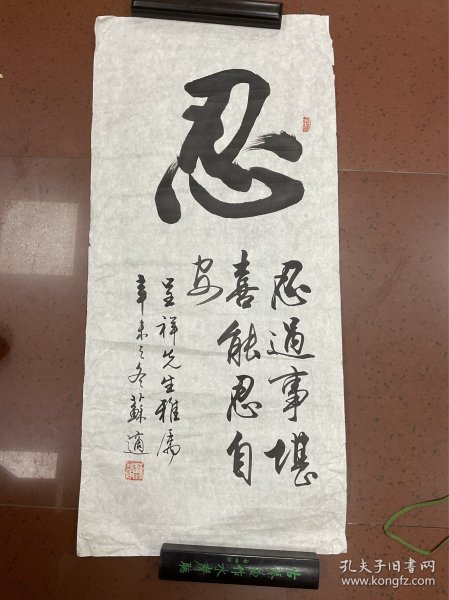 忍
忍過事堪
喜能忍自
安
呈祥先生雅属
辛未之冬蘇適
孔夫子旧书网
www.kongfz.com